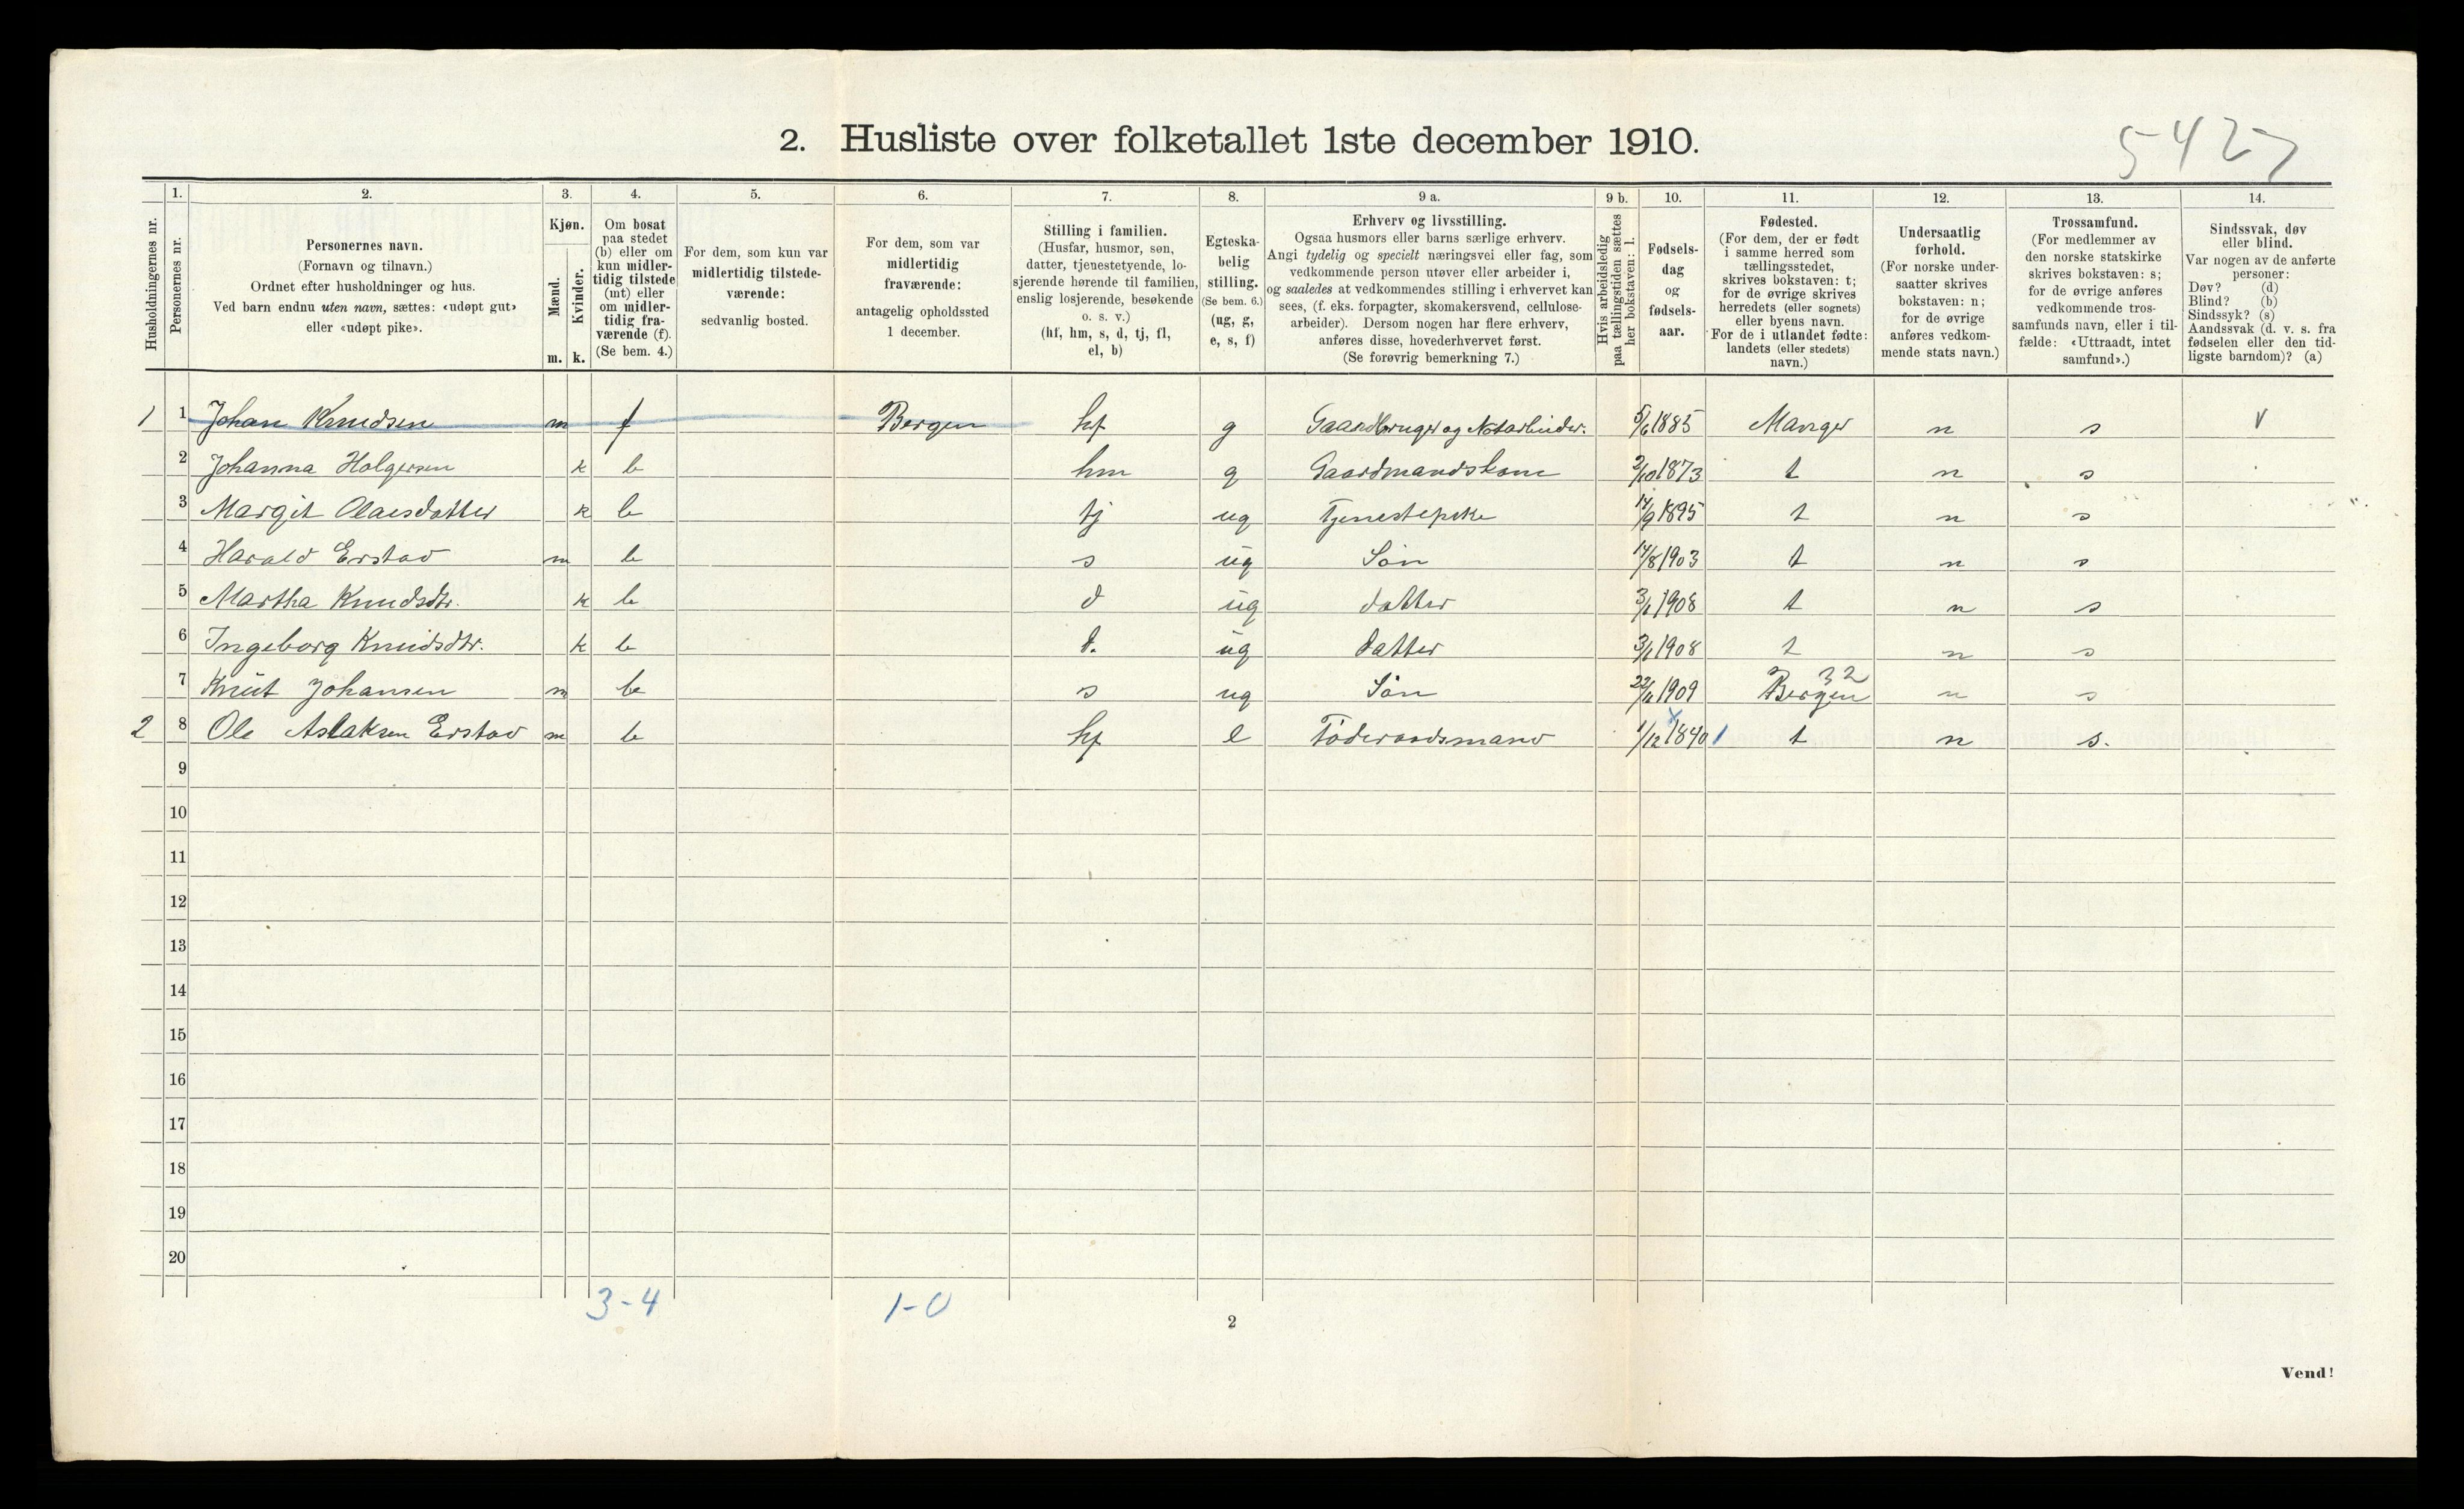 2. Husliste over folketallet 1ste december 1910.
5427
Husholdningernes nr.
1. Personernes nr.
2. Personernes navn.
(Fornavn og tilnavn.)
Ordnet efter husholdninger og hus.
Ved barn endnu uten navn, sættes: «udøpt gut»
eller «udøpt pike».
3. Kjøn.
Mænd. m.
Kvinder. k.
4. Om bosat
paa stedet
(b) eller om
kun midler-
tidig tilstede
(mt) eller
om midler-
tidig fra-
værende (f).
(Se bem. 4.)
5. For dem, som kun var
midlertidig tilstede-
værende:
sedvanlig bosted.
6. For dem, som var
midlertidig
fraværende:
antagelig opholdssted
1 december.
7. Stilling i familien.
(Husfar, husmor, søn,
datter, tjenestetyende, lo-
sjerende hørende til familien,
enslig losjerende, besøkende
o. s. v.)
(hf, hm, s, d, tj, fl,
el, b)
8. Egteska-
belig
stilling.
(Se bem. 6.)
(ug, g,
e, s, f)
9 a. Erhverv og livsstilling.
Ogsaa husmors eller barns særlige erhverv.
Angi tydelig og specielt næringsvei eller fag, som
vedkommende person utøver eller arbeider i,
og saaledes at vedkommendes stilling i erhvervet kan
sees, (f. eks. forpagter, skomakersvend, cellulose-
arbeider). Dersom nogen har flere erhverv,
anføres disse, hovederhvervet først.
(Se forøvrig bemerkning 7.)
9 b. Hvis arbeidsledig
paa tællingstiden sættes
her bokstaven: l.
10. Fødsels-
dag
og
fødsels-
aar.
11. Fødested.
(For dem, der er født
i samme herred som
tællingsstedet,
skrives bokstaven: t;
for de øvrige skrives
herredets (eller sognets)
eller byens navn.
For de i utlandet fødte:
landets (eller stedets)
navn.)
12. Undersaatlig
forhold.
(For norske under-
saatter skrives
bokstaven: n;
for de øvrige
anføres vedkom-
mende stats navn.)
13. Trossamfund.
(For medlemmer av
den norske statskirke
skrives bokstaven: s;
for de øvrige anføres
vedkommende tros-
samfunds navn, eller i til-
fælde: «Uttraadt, intet
samfund».)
14. Sindssvak, døv
eller blind.
Var nogen av de anførte
personer:
Døv? (d)
Blind? (b)
Sindssyk? (s)
Aandssvak (d. v. s. fra
fødselen eller den tid-
ligste barndom)? (a)
1 1 Johan Knudsen m f Bergen hf g Gaardbruger og Notarbeider. 5/6 1885 Manger n s v
2 Johanna Holgersen k b hm g Gaardmandskone 2/10 1873 t n s
3 Margit Olaisdatter k b tj ug Tjenestepike 14/9 1895 t n s
4 Harald Erstad m b s ug Søn 14/8 1903 t n s
5 Martha Knudsdtr. k b d ug datter 3/1 1908 t n s
6 Ingeborg Knudsdtr. k b d. ug datter 3/1 1908 t n s
32
7 Knut Johansen m b s ug Søn 22/11 1909 Bergen n s
2 8 Ole Aslaksen Erstad m b hf e Føderaadsmand 1/12 1840 1 t n s.
9
10
11
12
13
14
15
16
17
18
19
20
3-4 1-0
2
Vend!